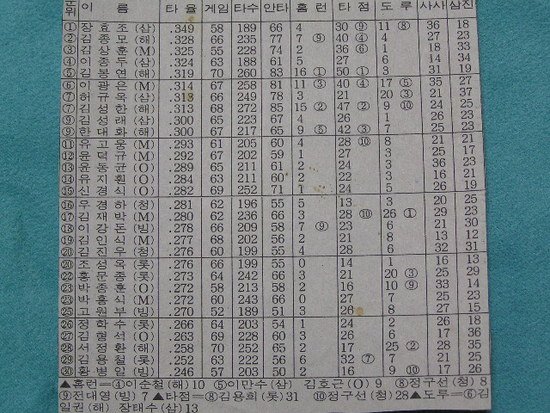 순위 이름 타율 게임 타수 안타 홈런 타점 도루 사사 삼진
① 장효조(삼) .349 58 189 66 4 30⑨ 11⑧ 36 18
② 김종모(해) .328 66 235 77 7⑨ 40④ 4 26 18
③ 김상훈(M) .325 55 228 74 2 36⑥ 1 18 33
④ 이종두(삼) .324 63 188 61 5 27 6 14 34
⑤ 김봉연(해) .319 70 260 83 16① 50① 3 31 19
⑥ 이광은(M) .314 67 258 81 11③ 40④ 17⑤ 35 27
⑦ 허규옥(삼) .313 66 249 78 3 21 20③ 21 37
⑦ 김성한(해) .313 68 272 85 15② 47② 9⑩ 24 25
⑨ 김성래(삼) .300 65 223 67 4 26 1 26 23
⑨ 한대화(해) .300 67 217 65 9⑤ 42③ 7 25 23
⑪ 유고웅(M) .293 61 205 60 4 28⑩ 8 21 21
⑫ 윤덕규(M) .292 67 202 59 1 27 3 25 17
⑬ 윤동균(O) .289 65 211 61 2 24 3 36 23
⑭ 유지훤(O) .284 63 211 60 2 22 3 16 21
⑮ 신경식(O) .282 69 252 71 1 24 5 26 19
⑯ 우경하(청) .281 62 196 55 5 13 3 20 25
⑰ 김재박(M) .280 62 236 66 3 28⑩ 26① 29 23
⑱ 이강돈(빙) .278 66 209 58 7⑨ 31 9 23 30
⑲ 김인식(M) .277 68 202 56 2 21 8 13 12
⑳ 김진우(청) .276 60 199 55 4 28 6 32 31
⑳ 조성옥(롯) .276 66 199 55 0 14 1 16 13
㉒ 홍문종(롯) .273 64 242 66 3 21 20③ 25 29
㉓ 박종훈(O) .272 58 213 58 2 16 10⑨ 33 14
㉓ 박흥식(M) .272 64 243 66 0 27 7 25 23
㉕ 고원부(빙) .270 52 189 51 3 26 8 27 15
㉖ 정학수(롯) .266 64 203 54 1 24 2 26 18
㉗ 김형석(O) .263 69 228 60 3 26 6 17 34
㉘ 서정환(해) .258 70 252 65 2 17 25② 28 35
㉙ 김용철(롯) .252 63 222 56 6 32⑦ 7 21 35
㉚ 황병일(빙) .246 57 203 50 2 16 9⑩ 17 26
▲홈런=④이순철(해)10 ⑤이만수(삼) 김호근(O)9 ⑧정구선(청)8
⑨전대영(빙)7 ▲타점=⑧김용희(롯)31 ⑩정구선(청)28▲도루=⑥김
일권(해) 장태수(삼)13